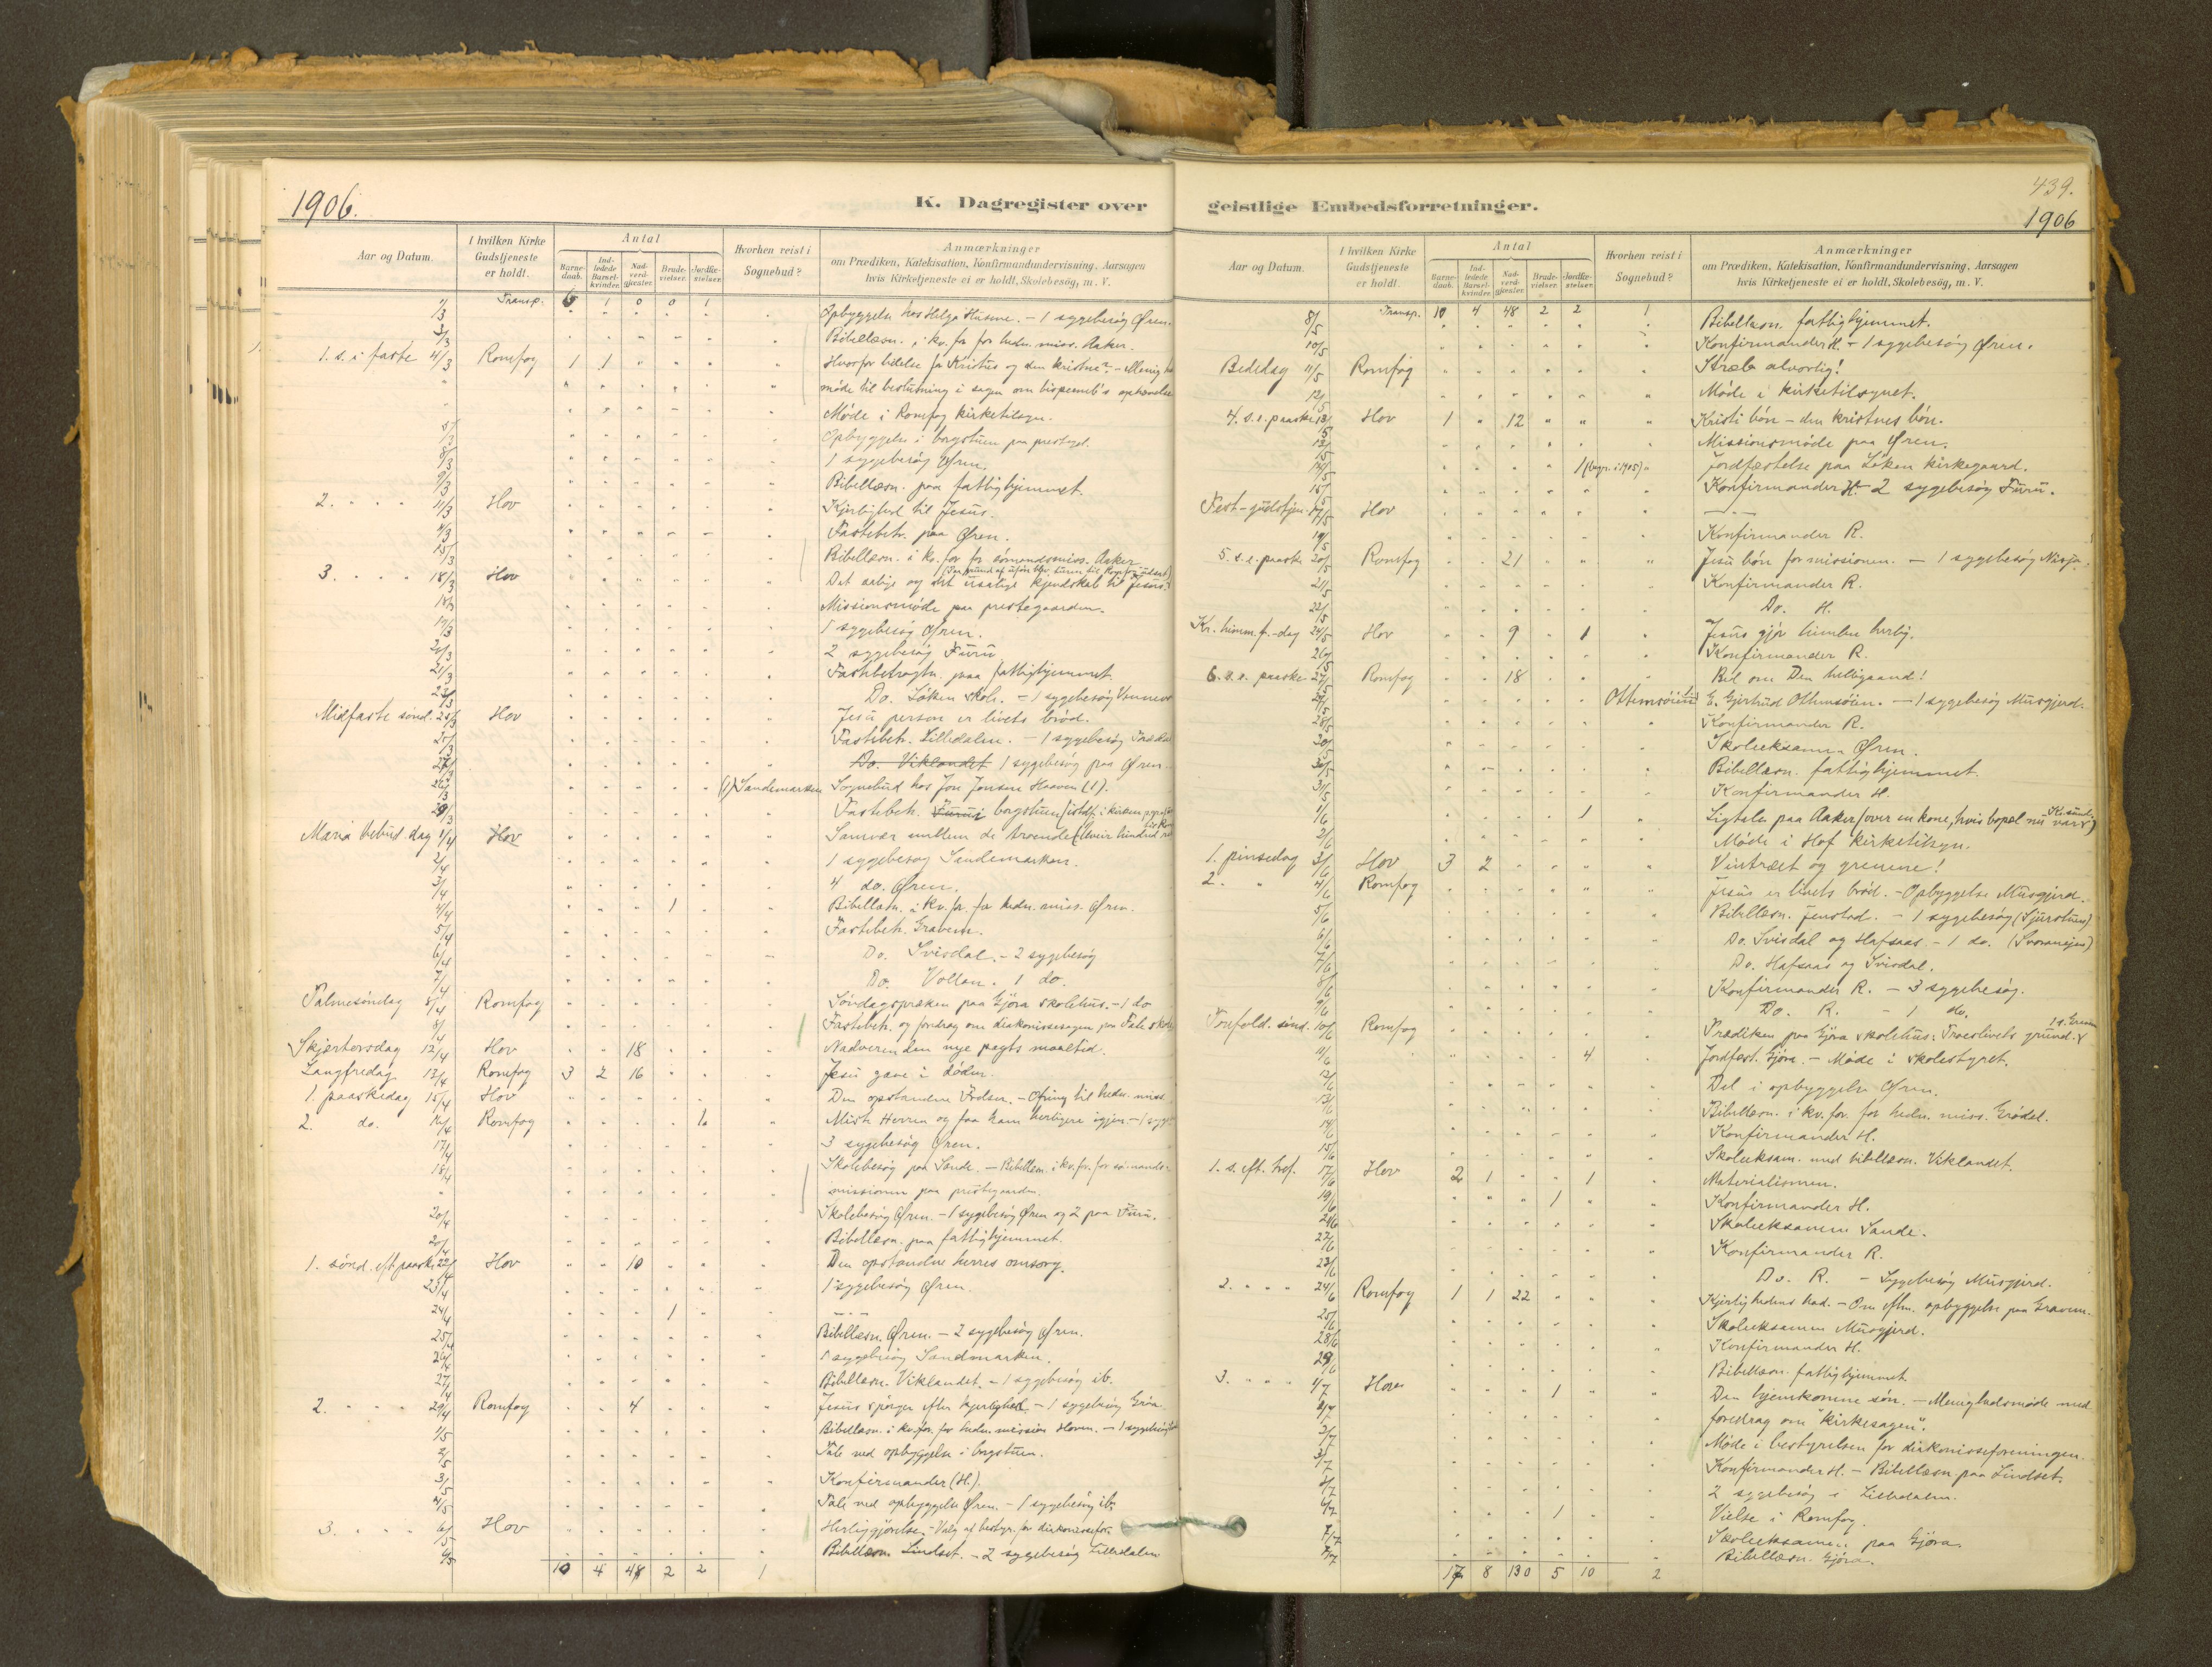 1906.
K. Dagregister over
Aar og Datum.
I hvilken Kirke Gudstjeneste er holdt.
Antal
Barne-daab.
Ind-ledede Barsel-kvinder.
Nad-verd-gjæster.
Brude-vielser.
Jordfæ-stelser.
Hvorhen reist i Sognebud?
Anmærkninger
om Prædiken, Katekisation, Konfirmandundervisning, Aarsagen
hvis Kirketjeneste ei er holdt, Skolebesøg, m. V.
1/3 Transp. 6 1 0 0 1 Opbyggelse hos Helge Husmo. - 1 sygebesøg Øren.
3/3 Bibellæsn. i kv. for. for hedn. miss. Aaker.
1. s. i faste 4/3 Romfog 1 1 Hvorfor lidelse for Kristus og den kristne? - Menigheds
møde til beslutning i sagen om bispeemb's ophævelse
Møde i Romfog kirketilsyn.
5/3 Opbyggelse i borgstuen paa prestegd.
8/3 1 sygebesøg Øren.
9/3 Bibellæsn. paa fattighjemmet.
2. 11/3 Hov Kjærlighed til Jesus.
Fastebetr. paa Øren.
15/3 Bibellæsn. i kv. for. for sømandsmiss. Aaker
3. 18/3 Hov Det salige og det usalige kjendskab til Jesus.
Missionsmøde paa prestegaarden.
1 sygebesøg Øren.
2 sygebesøg Furu
21/3 Fastebetragtn. paa fattighjemmet.
Do. Løken skole. - 1 sygebesøg
Midfaste sønd. 25/3 Hov Jesu person er livets brød.
Fastebetr. Lilledalen. - 1 sygebesøg
Do. Viklandet 1 sygebesøg paa Øren.
(1) Sandemarken Sognebud hos Jon Jonsen Haaven (1).
29/3 Fastebetr. Furu borgstuen
Maria bebud. dag 1/4 Hov Samvær mellem de troende
2/4 1 sygebesøg Sandemarken.
3/4 4 do. Øren.
4/4 1 Bibellæsn. i kv. for. for hedn. miss. Øren.
5/4 Fastebetr. Gravem.
6/4 Do. Svisdal. - 2 sygebesøg
7/4 Do. Vollan. 1 do.
Palmesøndag 8/4 Romfog Søndagspræken paa Gjøra skolehus. - 1 do
8/4 Fastebetr. og foredrag om diakonissesagen paa Fale skole
Skjærtorsdag 12/4 Hov 18 Nadveren den nye pagts maaltid.
Langfredag 13/4 Romfog 3 2 16 Jesu gave i døden.
1. paaskedag 15/4 Hov Den opstandne Frelser. - Ofring til hedn. miss.
2. do. 16/4 Romfog 1 Miste Herren og faa ham herligere igjen. - 1 syg
17/4 3 sygebesøg Øren.
18/4 Skolebesøg paa Sande. - Bibellæsn. i kv. for. for sømands-
missionen paa prestegaarden.
20/4 Skolebesøg Øren. - 1 sygebesøg Øren og 2 paa Furu.
Bibellæsn. paa fattighjemmet.
1. sønd. eft. paaske 22/4 Hov 10 Den opstandne herres omsorg.
23/4 1 sygebesøg Øren.
24/4 1
25/4 Bibellæsn. Øren. - 2 sygebesøg Øren.
26/4 1 sygebesøg Sandmarken.
27/4 Bibellæsn. Viklandet. - 1 sygebesøg ib.
2. 29/4 Romfog 4 Jesus spørger efter kjærlighed. - 1 sygebesøg
1/5 Bibellæsn. i kv. for. for hedn. mission Hoven. - 1 sygebesøg
2/5 Tale ved opbyggelse i borgstuen.
3/5 Konfirmander (H.).
4/5 Tale ved opbyggelse Øren. - 1 sygebesøg ib.
3. 6/5 Hov Herliggjørelse. - Valg af bestyr. for diakonissefor.
Bibellæsn. Lindset. - 2 sygebesøg Lilledalen
10 4 48 2 2 1
439.
geistlige Embedsforretninger.
1906
Aar og Datum.
I hvilken Kirke Gudstjeneste er holdt.
Antal
Barne-daab.
Ind-ledede Barsel-kvinder.
Nad-verd-gjæster.
Brude-vielser.
Jordfæ-stelser.
Hvorhen reist i Sognebud?
Anmærkninger
om Prædiken, Katekisation, Konfirmandundervisning, Aarsagen
hvis Kirketjeneste ei er holdt, Skolebesøg, m. V.
8/5 Transp. 10 4 48 2 2 1 Bibellæsn. fattighjemmet.
10/5 Konfirmander H. - 1 sygebesøg Øren.
Bededag 11/5 Romfog Stræb alvorlig!
12/5 Møde i kirketilsynet.
4. s. e. paaske 13/5 Hov 1 12 Kristi bøn - den kristnes bøn.
13/5 Missionsmøde paa Øren.
1 (begr. i 1905) Jordfæstelse paa Løken kirkegaard.
15/5 Konfirmander H. - 2 sygebesøg Furu.
Fest-gudstjen. 17/5 Hov
19/5 Konfirmander R.
5. s. e. paaske 20/5 Romfog 21 Jesu bøn for missionen. - 1 sygebesøg Nisja.
21/5 Konfirmander R.
22/5 Do. H.
Kr. himm. f.-dag 24/5 Hov 9 1 Jesus gjør himlen herlig.
26/5 Konfirmander R.
6. s. e. paaske 27/5 Romfog 18 Bed om Den helligaand!
Ottemsøien E. Gjertrud Ottemsøien. - 1 sygebesøg Musgjerd.
28/5 Konfirmander R.
30/5 Skoleeksamen Øren.
30/5 Bibellæsn. fattighjemmet.
31/5 Konfirmander H.
1/6 1 Ligtale paa Aaker (over en kone, hvis bopæl nu var Kr.sund.)
2/6 Møde i Hof kirketilsyn.
1. pinsedag 3/6 Hov 3 2 Vintræet og grenene!
2. " 4/6 Romfog Jesus er livets brød. - Opbyggelse Musgjerd.
5/6 Bibellæsn. Jenstad. - 1 sygebesøg (Sjurstuen)
6/6 Do. Svisdal og Hafsaas - 1 do.
7/6 Do. Hafsaas og Svisdal.
8/6 Konfirmander R. - 3 sygebesøg.
9/6 Do. R. - 1 do.
Trefold. sønd. 10/6 Romfog Prædiken paa Gjøra skolehus: Troeslivets grund.
11/6 4 Jordfæst. Gjøra. - Møde i skolestyret.
12/6 Del i opbyggelse Øren.
13/6 Bibellæsn. i kv. for. for hedn. miss. Grødal.
14/6 Konfirmander H.
15/6 Skoleeksam. med bibellæsn. Viklandet.
1. s. eft. tref. 17/6 Hov 2 1 1 Materialismen.
19/6 1 Konfirmander H.
Skoleeksamen Sande.
22/6 Konfirmander R.
23/6 Do. R. - Sygebesøg Musgjerd.
2. 24/6 Romfog 1 1 22 Kjærlighedens had. - Om eftm. opbyggelse paa Gravem.
25/6 Skoleeksamen Musgjerd.
28/6 Konfirmander H.
29/6 Bibellæsn. fattighjemmet.
3. 1/7 Hov 1 Den hjemkomne søn. - Menighedsmøde med
foredrag om "kirkesagen".
2/7 Møde i bestyrelsen for diakonisseforeningen.
3/7 Konfirmander H. - Bibellæsn. paa Lindset.
4/7 2 sygebesøg i Lilledalen.
6/7 1 Vielse i Romfog.
7/7 Skoleeksamen paa Gjøra.
Bibellæsn. Gjøra.
17 8 130 5 10 2